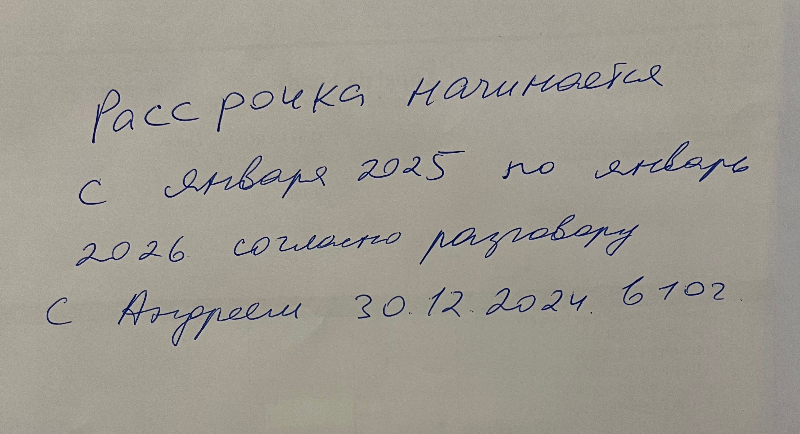 Рассрочка начинается
с января 2025 по январь
2026 согласно разговору
с Андреем 30.12.2024. в 10ч.